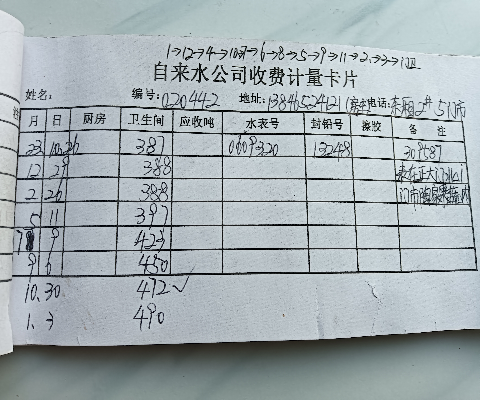 1→12→4→10→7→6→8→5→9→11→2→3→1
自来水公司收费计量卡片
姓名: 编号:020442 地址:13846524121 电话:东厢2# 5门市
月 日 厨房 卫生间 应收吨 水表号 封铅号 擦胶 备注
23 10.26 387 0009320 13248 309587
12 29 388
2 26 388 门市
5 11 397
7 9 423
9 6 450
10.30 472✓
1.3 490